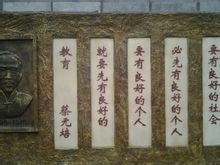 要有良好的社会
必先有良好的个人
要有良好的个人
就要先有良好的
教育 蔡元培